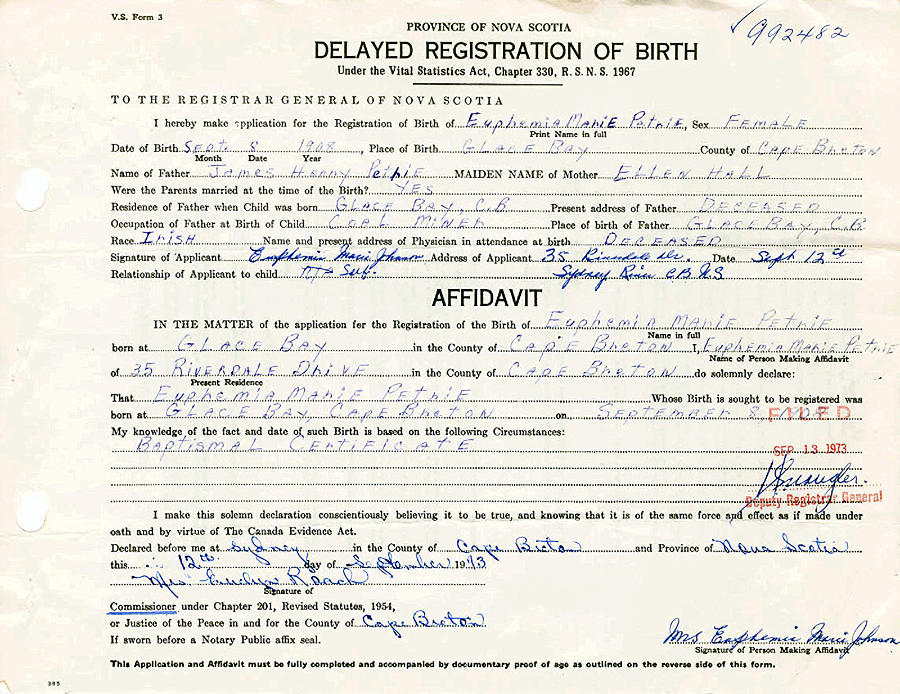 V.S. Form 3
PROVINCE OF NOVA SCOTIA
992482
DELAYED REGISTRATION OF BIRTH
Under the Vital Statistics Act, Chapter 330, R.S.N.S. 1967
TO THE REGISTRAR GENERAL OF NOVA SCOTIA
I hereby make application for the Registration of Birth of Euphemia Marie Petrie, Sex Female
Print Name in full
Date of Birth Sept. 8 1908, Place of Birth Glace Bay County of Cape Breton
Month Date Year
Name of Father James Henry Petrie MAIDEN NAME of Mother Ellen Hall
Were the Parents married at the time of the Birth? Yes
Residence of Father when Child was born Glace Bay, C.B. Present address of Father Deceased
Occupation of Father at Birth of Child Coal Miner Place of birth of Father Glace Bay, C.B.
Race Irish Name and present address of Physician in attendance at birth Deceased
Signature of Applicant Euphemia Marie Johnson Address of Applicant 35 Riverdale Dr. Date Sept 12th
Relationship of Applicant to child Self. Sydney River C.B. N.S
AFFIDAVIT
IN THE MATTER of the application for the Registration of the Birth of Euphemia Marie Petrie
Name in full
born at Glace Bay in the County of Cape Breton I, Euphemia Marie Petrie
Name of Person Making Affidavit
of 35 Riverdale Drive in the County of Cape Breton do solemnly declare:
Present Residence
That Euphemia Marie Petrie Whose Birth is sought to be registered was
born at Glace Bay, Cape Breton on September 8 1908
FILED
My knowledge of the fact and date of such Birth is based on the following Circumstances:
Baptismal Certificate
SEP 13 1973
Deputy Registrar General
I make this solemn declaration conscientiously believing it to be true, and knowing that it is of the same force and effect as if made under
oath and by virtue of The Canada Evidence Act.
Declared before me at Sydney in the County of Cape Breton and Province of Nova Scotia
this 12th day of September 1973
Mrs Evelyn Roach
Signature of
Commissioner under Chapter 201, Revised Statutes, 1954,
or Justice of the Peace in and for the County of Cape Breton
If sworn before a Notary Public affix seal.
Mrs Euphemia Marie Johnson
Signature of Person Making Affidavit
This Application and Affidavit must be fully completed and accompanied by documentary proof of age as outlined on the reverse side of this form.
385